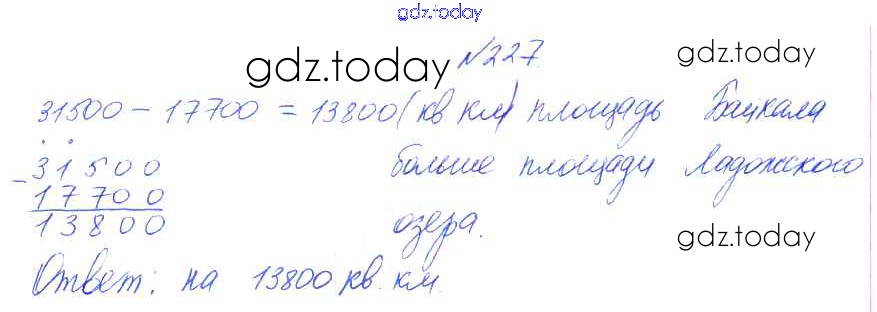 gdz.today
№227
gdz.today
gdz.today
31500 - 17700 = 13800 (кв км) площадь Байкала
больше площади Ладожского
озера.
- 31500
17700
13800
gdz.today
Ответ: на 13800 кв. км.